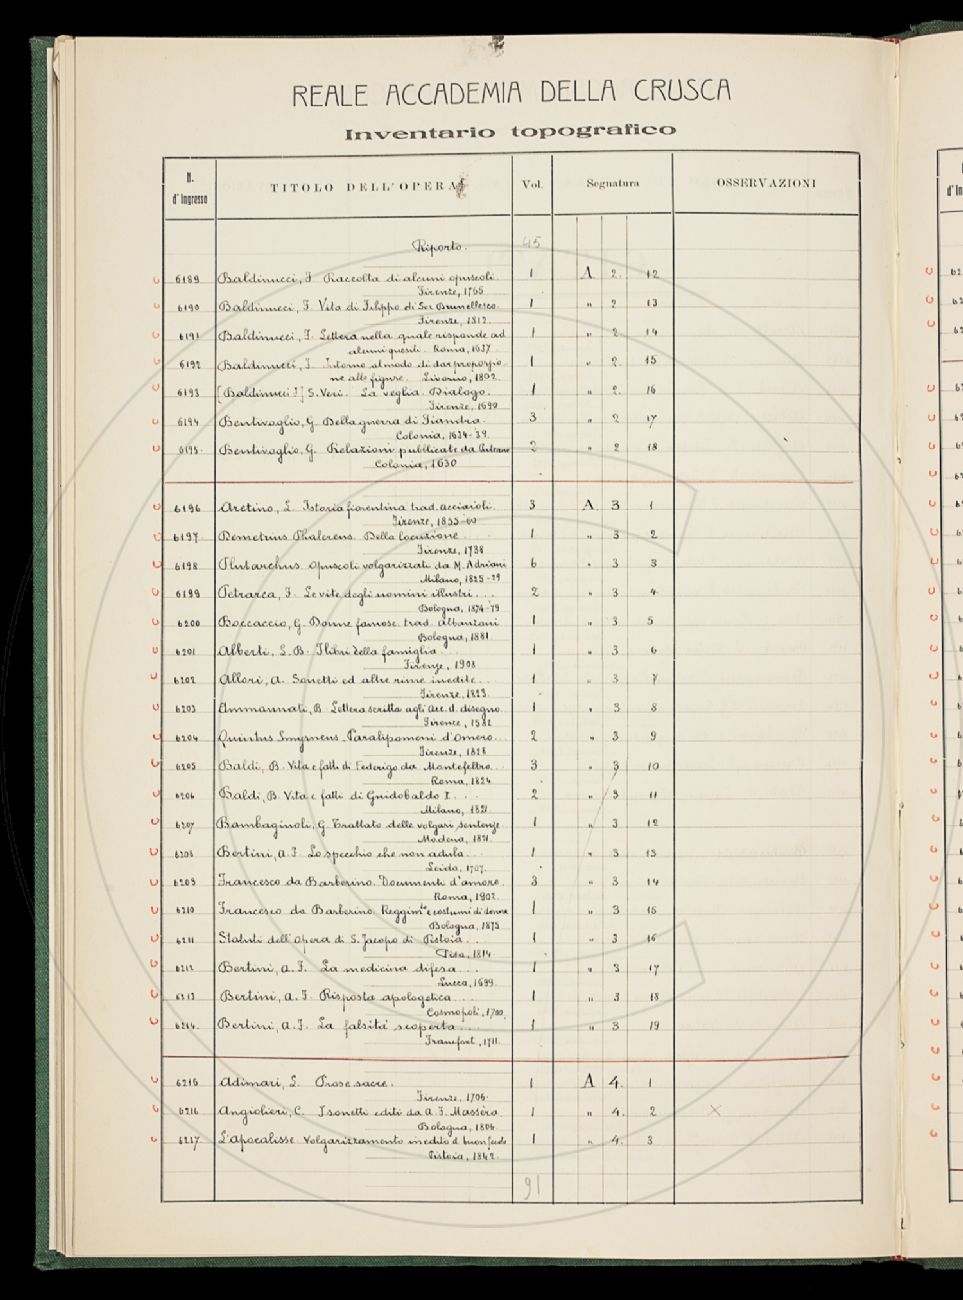 REALE ACCADEMIA DELLA CRUSCA
Inventario topografico
N. d'Ingresso TITOLO DELL'OPERA Vol. Segnatura OSSERVAZIONI
Riporto. 45
6189 Baldinucci, F. Raccolta di alcuni opuscoli. 1 A 2. 12
Firenze, 1765
6190 Baldinucci, F. Vita di Filippo di Ser Brunellesco. 1 " 2 13
Firenze, 1812.
6191 Baldinucci, F. Lettera nella quale risponde ad 1 " 2. 14
alcuni quesiti. Roma, 1687
6192 Baldinucci, F. Intorno al modo di dar proporzio- 1 " 2. 15
ne alle figure. Livorno, 1802.
6193 [Baldinucci F] S. Veri. La veglia. Dialogo. 1 " 2. 16
Firenze, 1690
6194 Bentivoglio, G. Della guerra di Fiandra. 3 " 2 17
Colonia, 1634-39.
6195. Bentivoglio, G. Relazioni pubblicate da 2 " 2 18
Colonia, 1630
6196 Aretino, L. Istoria fiorentina trad. Acciaioli. 3 A. 3 1
Firenze, 1855-60
6197 Demetrius Phalereus. Della locuzione. 1 " 3 2
Firenze, 1738
6198 Plutarchus. Opuscoli volgarizzati da M. Adriani 6 " 3 3
Milano, 1825-29
6199 Petrarca, F. Le vite degli uomini illustri... 2 " 3 4.
Bologna, 1874-79
6200 Boccaccio, G. Donne famose. trad. Albanzani 1 " 3 5
Bologna, 1881.
6201 Alberti, L. B. I libri della famiglia... 1 " 3 6
Firenze, 1908
6202 Allori, A. Sonetti ed altre rime inedite... 1 " 3 7
Firenze, 1823.
6203 Ammannati, B. Lettera scritta agli Acc. d. disegno. 1 " 3 8
Firenze, 1582
6204 Quintus Smyrneus. Paralipomeni d'Omero... 2 " 3 9
Firenze, 1828
6205 Baldi, B. Vita e fatti di Federigo da Montefeltro... 3 " 3 10
Roma, 1824.
6206 Baldi, B. Vita e fatti di Guidobaldo I... 2 " 3 11
Milano, 1821.
6207 Bambagiuoli, G. Trattato delle volgari sentenze. 1 " 3 12
Modena, 1821.
6208 Bertini, A. F. Lo specchio che non adula... 1 " 3 13
Leida, 1707.
6209 Francesco da Barberino. Documenti d'amore. 3 " 3 14
Roma, 1902.
6210 Francesco da Barberino. Reggimto e costumi di donna 1 " 3 15
Bologna, 1875
6211 Statuti dell'Opera di S. Jacopo di Pistoia.. 1 " 3 16
Pisa, 1814
6212 Bertini, A. F. La medicina difesa... 1 " 3 17
Lucca, 1699.
6213 Bertini, A. F. Risposta apologetica... 1 " 3 18
Cosmopoli, 1700.
6214. Bertini, A. F. La falsità scoperta... 1 " 3 19
Francfort, 1711.
6215 Adimari, L. Prose sacre. 1 A 4. 1
Firenze, 1706.
6216 Angiolieri, C. I sonetti editi da A. F. Massèra. 1 " 4. 2 X
Bologna, 1906
6217 L'Apocalisse. Volgarizzamento inedito d. buon secolo 1 " 4. 3
Pistoia, 1842.
91